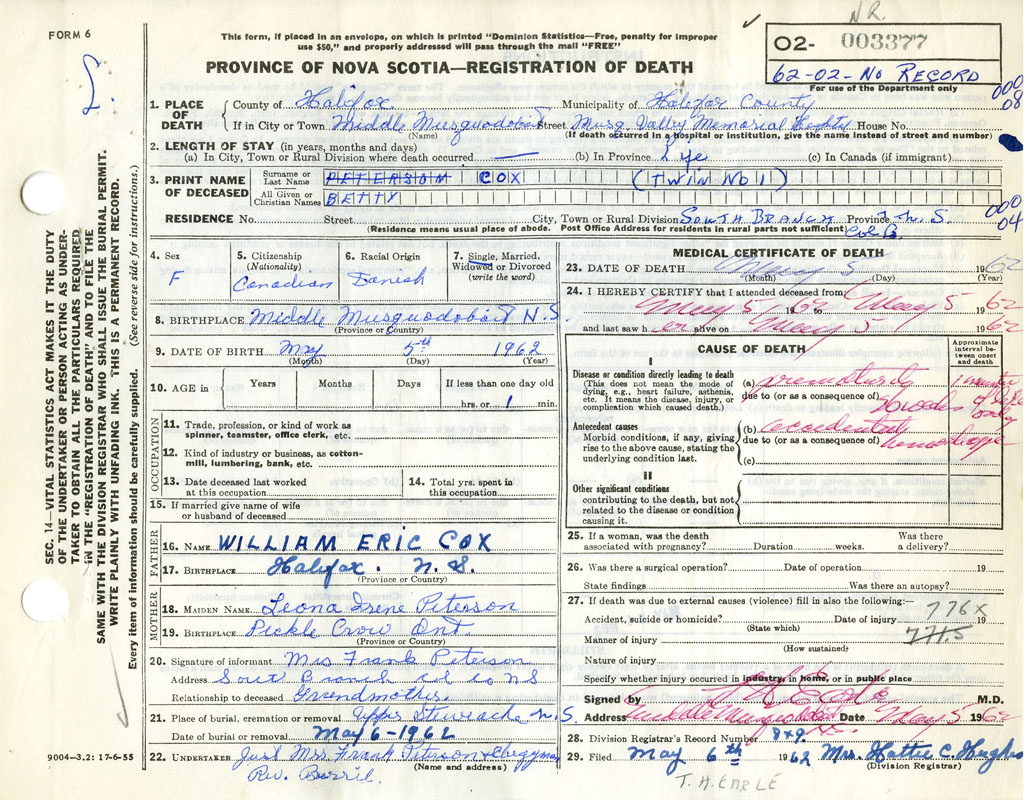 N.R.
FORM 6
This form, if placed in an envelope, on which is printed "Dominion Statistics—Free, penalty for improper
use $50," and properly addressed will pass through the mail "FREE"
PROVINCE OF NOVA SCOTIA—REGISTRATION OF DEATH
O2- 003377
62-02-No RECORD
For use of the Department only
000
08
1. PLACE OF DEATH
County of Halifax Municipality of Halifax County
If in City or Town Middle Musquodoboit Street Musq. Valley Memorial House No.
(Name) (If death occurred in a hospital or institution, give the name instead of street and number)
2. LENGTH OF STAY (in years, months and days)
(a) In City, Town or Rural Division where death occurred — (b) In Province Life (c) In Canada (if immigrant)
3. PRINT NAME OF DECEASED
Surname or Last Name PETERSON COX (TWIN NO 1)
All Given or Christian Names BETTY
RESIDENCE No. Street City, Town or Rural Division SOUTH BRANCH Province N.S.
(Residence means usual place of abode. Post Office Address for residents in rural parts not sufficient) Col
000
04
4. Sex F
5. Citizenship (Nationality) Canadian
6. Racial Origin Danish
7. Single, Married, Widowed or Divorced (write the word)
8. BIRTHPLACE Middle Musquodoboit N.S.
(Province or Country)
9. DATE OF BIRTH May 5th 1962
(Month) (Day) (Year)
10. AGE in Years Months Days If less than one day old
hrs. or 1 min.
OCCUPATION
11. Trade, profession, or kind of work as spinner, teamster, office clerk, etc.
12. Kind of industry or business, as cotton-mill, lumbering, bank, etc.
13. Date deceased last worked at this occupation
14. Total yrs. spent in this occupation
15. If married give name of wife or husband of deceased
FATHER
16. NAME WILLIAM ERIC COX
17. BIRTHPLACE Halifax. N.S.
(Province or Country)
MOTHER
18. MAIDEN NAME Leona Irene Peterson
19. BIRTHPLACE Pickle Crow Ont.
(Province or Country)
20. Signature of informant Mrs Frank Peterson
Address South Branch Col Co NS
Relationship to deceased Grandmother
21. Place of burial, cremation or removal Upper Stewiacke N.S.
Date of burial or removal May 6-1962
22. UNDERTAKER Just Mrs. Frank Peterson & Clergyman
Rev. Burril.
(Name and address)
MEDICAL CERTIFICATE OF DEATH
23. DATE OF DEATH May 5 1962
(Month) (Day) (Year)
24. I HEREBY CERTIFY that I attended deceased from
May 5 1962 to May 5 1962
and last saw her alive on May 5 1962
CAUSE OF DEATH
Approximate interval between onset and death
I
Disease or condition directly leading to death
(This does not mean the mode of dying, e.g., heart failure, asthenia, etc. It means the disease, injury, or complication which caused death.)
(a) Prematurity
due to (or as a consequence of)
Antecedent causes
Morbid conditions, if any, giving rise to the above cause, stating the underlying condition last.
(b) accidental
due to (or as a consequence of) hemorrhage
(c)
II
Other significant conditions
contributing to the death, but not related to the disease or condition causing it.
25. If a woman, was the death associated with pregnancy? Duration weeks. Was there a delivery?
26. Was there a surgical operation? Date of operation 19
State findings Was there an autopsy?
27. If death was due to external causes (violence) fill in also the following:—
Accident, suicide or homicide? Date of injury 19
(State which)
776X
7715
Manner of injury
(How sustained)
Nature of injury
Specify whether injury occurred in industry, in home, or in public place
Signed by M.D.
Address Middle Musquodoboit Date May 5 1962
28. Division Registrar's Record Number
29. Filed May 6th 1962 Mrs. Hattie C. Hughes
(Division Registrar)
T. H. EARLE
SEC. 14—VITAL STATISTICS ACT MAKES IT THE DUTY
OF THE UNDERTAKER OR PERSON ACTING AS UNDER-
TAKER TO OBTAIN ALL THE PARTICULARS REQUIRED
IN THE "REGISTRATION OF DEATH" AND TO FILE THE
SAME WITH THE DIVISION REGISTRAR WHO SHALL ISSUE THE BURIAL PERMIT.
WRITE PLAINLY WITH UNFADING INK. THIS IS A PERMANENT RECORD.
Every item of information should be carefully supplied. (See reverse side for instructions.)
9004-3.2: 17-6-55